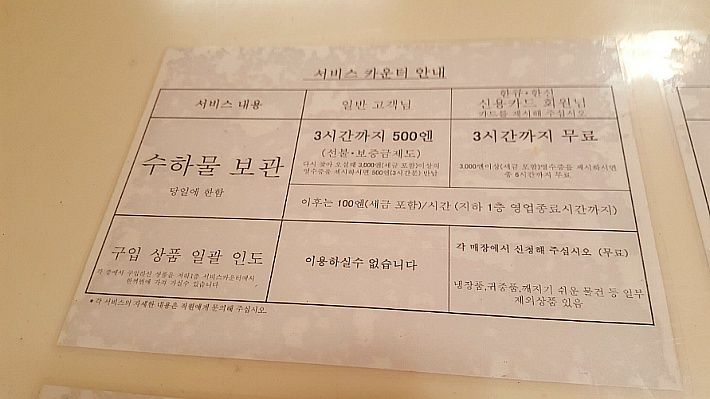 서비스 카운터 안내
서비스 내용
일반 고객님
한큐·한신
신용카드 회원님
카드를 제시해 주십시오
수하물 보관
당일에 한함
3시간까지 500엔
(선불·보증금제도)
다시 찾아 오실때 3,000엔(세금 포함)이상의
영수증을 제시하시면 500엔(3시간분) 반납
3시간까지 무료
3,000엔이상(세금 포함)영수증을 제시하시면
총 6시간까지 무료
이후는 100엔(세금 포함)/시간 (지하 1층 영업종료시간까지)
구입 상품 일괄 인도
각 층에서 구입하신 상품을 지하1층 서비스카운터에서
한꺼번에 가져 가실수 있습니다
이용하실수 없습니다
각 매장에서 신청해 주십시오 (무료)
냉장품,귀중품,깨지기 쉬운 물건 등 일부
제외상품 있음
*각 서비스의 자세한 내용은 직원에게 문의해 주십시오.